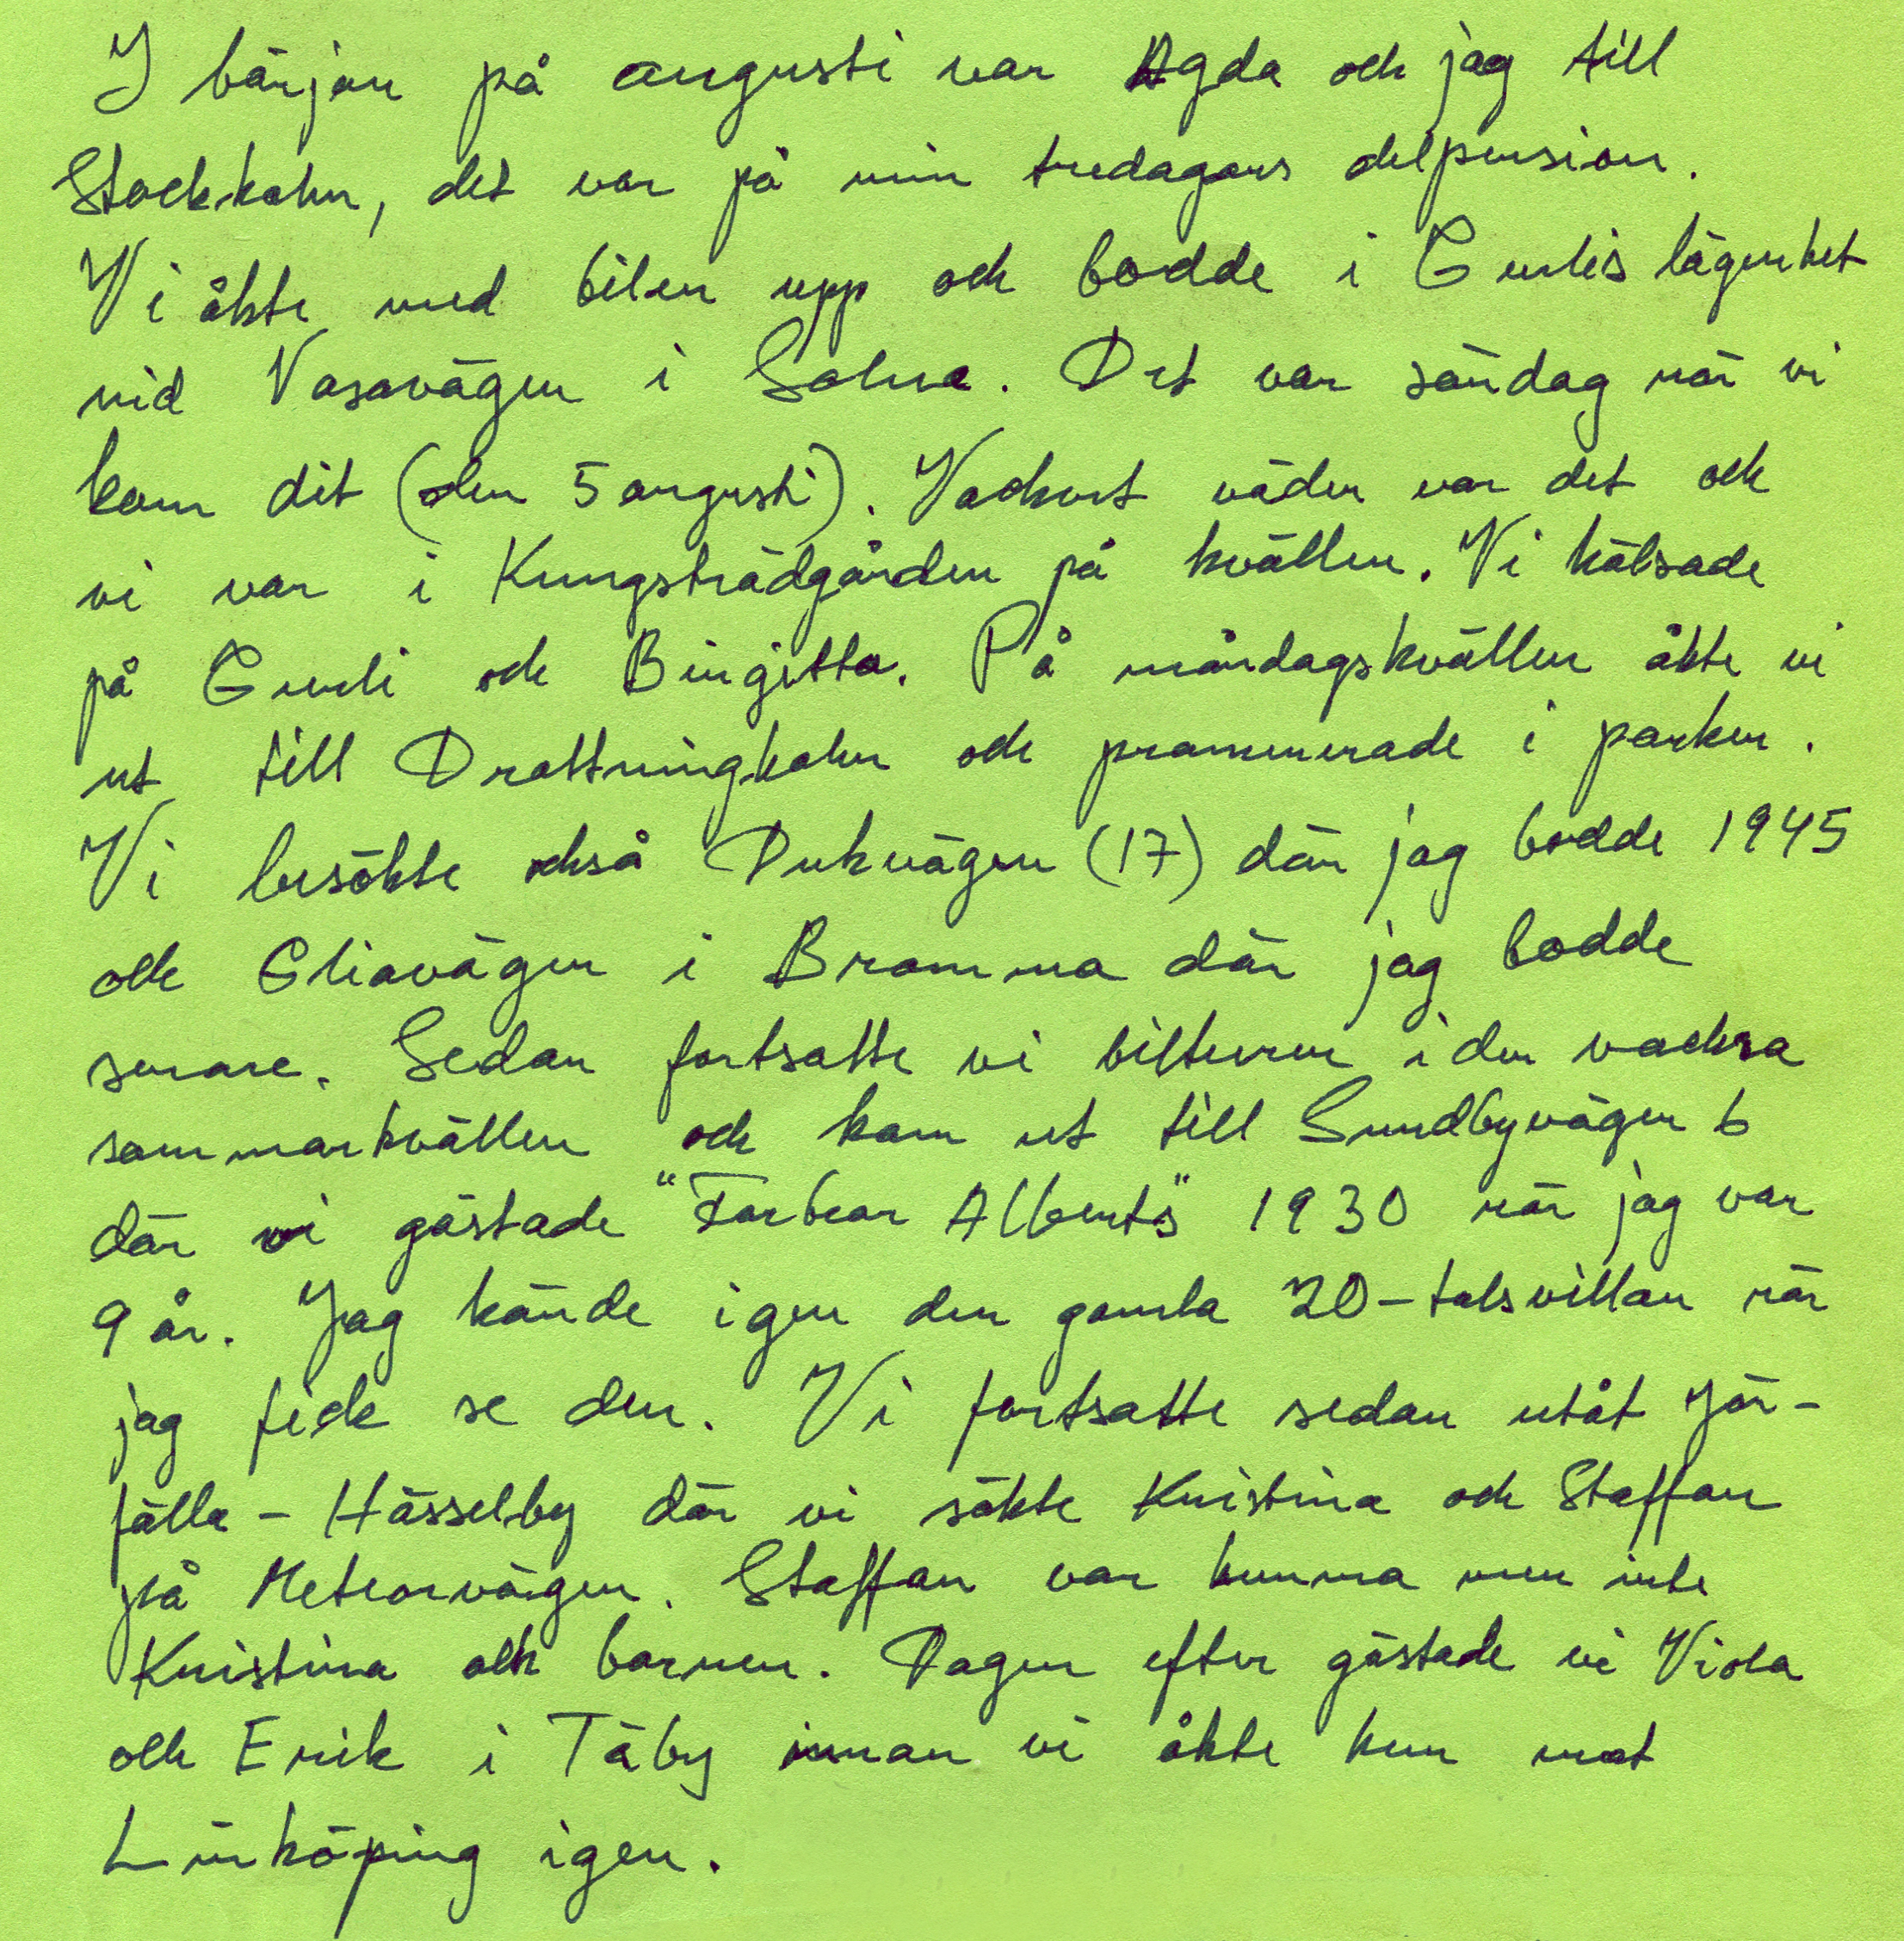 I början på augusti var Agda och jag till
Stockholm, det var på min tredagars delpension.
Vi åkte med bilen upp och bodde i Gurlis lägenhet
vid Vasavägen i Solna. Det var söndag när vi
kom dit (den 5 augusti). Vackert väder var det och
vi var i Kungsträdgården på kvällen. Vi hälsade
på Gurli och Birgitta. På måndagskvällen åkte vi
ut till Drottningholm och promenerade i parken.
Vi besökte också Dukvägen (17) där jag bodde 1945
och Gliavägen i Bromma där jag bodde
senare. Sedan fortsatte vi bilturen i den vackra
sommarkvällen och kom ut till Sundbyvägen 6
där vi gästade "Farbror Alberts" 1930 när jag var
9 år. Jag kände igen den gamla 20-talsvillan när
jag fick se den. Vi fortsatte sedan utåt Jär-
fälla - Hässelby där vi sökte Kristina och Staffan
på Meteorvägen. Staffan var hemma men inte
Kristina och barnen. Dagen efter gästade vi Viola
och Erik i Täby innan vi åkte hem mot
Linköping igen.